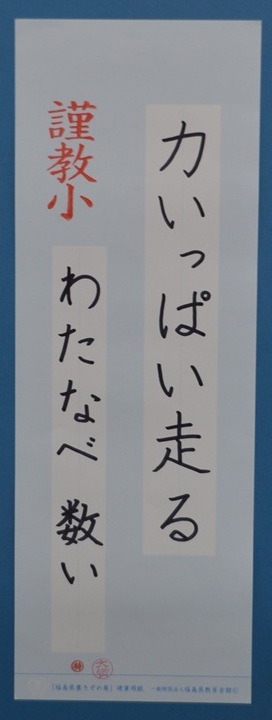 力いっぱい走る
謹教小
わたなべ 数い
「福島県書きぞめ展」硬書用紙 一般財団法人福島県教育会館©